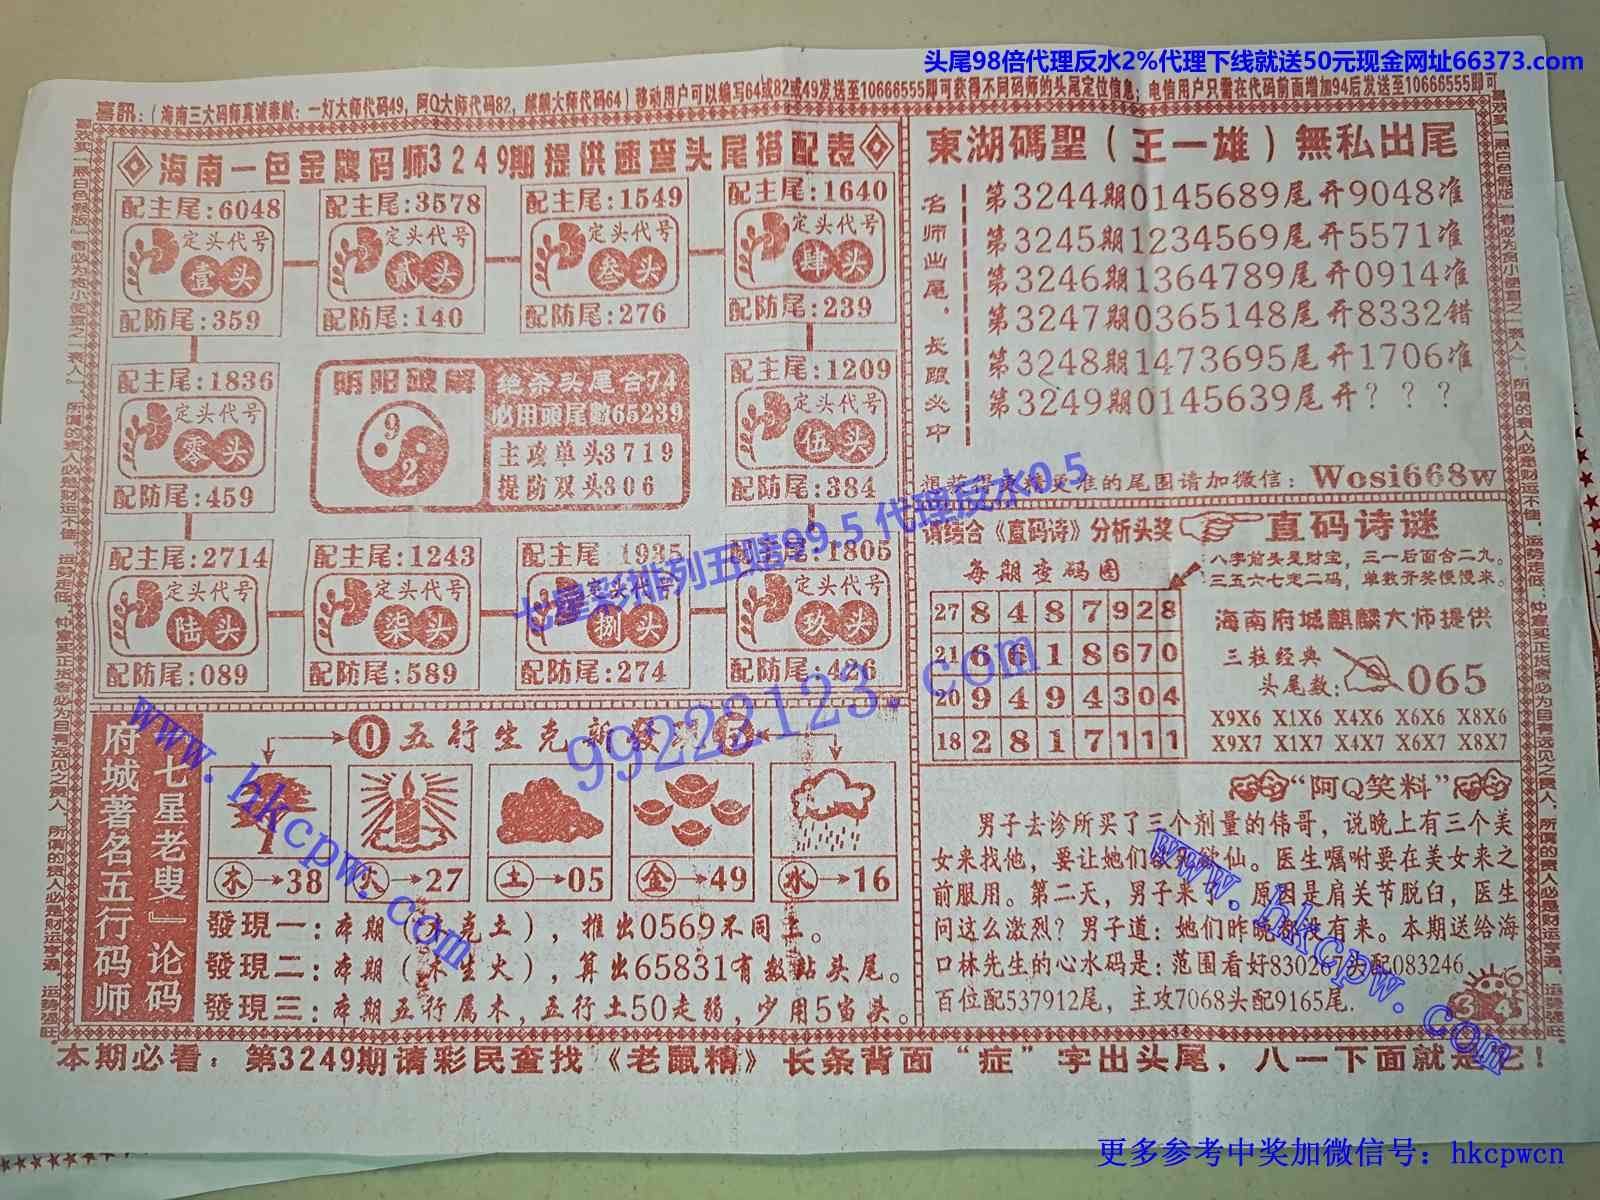 头尾98倍代理反水2%代理下线就送50元现金网址66373.com
喜訊：（海南三大码师真诚奉献：一灯大师代码49，阿Q大师代码82，麒麟大师代码64）移动用户可以编写64或82或49发送至10666555即可获得不同码师的头尾定位信息；电信用户只需在代码前面增加94后发送至10666555即可
海南一色金牌码师3249期提供速查头尾搭配表
配主尾:6048
定头代号
壹头
配防尾:359
配主尾:3578
定头代号
贰头
配防尾:140
配主尾:1549
定头代号
叁头
配防尾:276
配主尾:1640
定头代号
肆头
配防尾:239
配主尾:1836
定头代号
零头
配防尾:459
阴阳破解
9
2
绝杀头尾合74
必用頭尾數65239
主攻单头3719
提防双头306
配主尾:1209
定头代号
伍头
配防尾:384
配主尾:2714
定头代号
陆头
配防尾:089
配主尾:1243
定头代号
柒头
配防尾:589
配主尾 1935
定头代号
捌头
配防尾:274
配主尾:1805
定头代号
玖头
配防尾:426
東湖碼聖（王一雄）無私出尾
名师出尾，长跟必中
第3244期0145689尾开9048准
第3245期1234569尾开5571准
第3246期1364789尾开0914准
第3247期0365148尾开8332错
第3248期1473695尾开1706准
第3249期0145639尾开？？？
的尾图请加微信：Wosi668w
请结合《直码诗》分析头奖
直码诗谜
八字前头是财宝，三一后面合二九。
三五六七定二码，单数开奖慢慢来。
每期查码图
27 8 4 8 7 9 2 8
21 6 6 1 8 6 7 0
20 9 4 9 4 3 0 4
18 2 8 1 7 1 1 1
海南府城麒麟大师提供
三拉经典
头尾数:
065
X9X6 X1X6 X4X6 X6X6 X8X6
X9X7 X1X7 X4X7 X6X7 X8X7
府城著名五行码师
『七星老叟』论码
0 五行生克新發
木→38
火→27
土→05
金→49
水→16
發現一：本期（木克土），推出0569不同上。
發現二：本期（木生火），算出65831有数站头尾。
發現三：本期五行属木，五行土50走弱，少用5留头。
“阿Q笑料”
男子去诊所买了三个剂量的伟哥，说晚上有三个美
女来找他，要让她们欲死欲仙。医生嘱咐要在美女来之
前服用。第二天，男子来 原因是肩关节脱臼，医生
问这么激烈？男子道：她们昨晚都没有来。本期送给海
口林先生的心水码是：范围看好830267头配083246
百位配537912尾，主攻7068头配9165尾.
本期必看：第3249期请彩民查找《老鼠精》长条背面“症”字出头尾，八一下面就是它！
七星彩排列五赔99.5 代理反水0.5
99222123.com
www.hkcpw.com
www.hkcpw.com
更多参考中奖加微信号：hkcpwcn